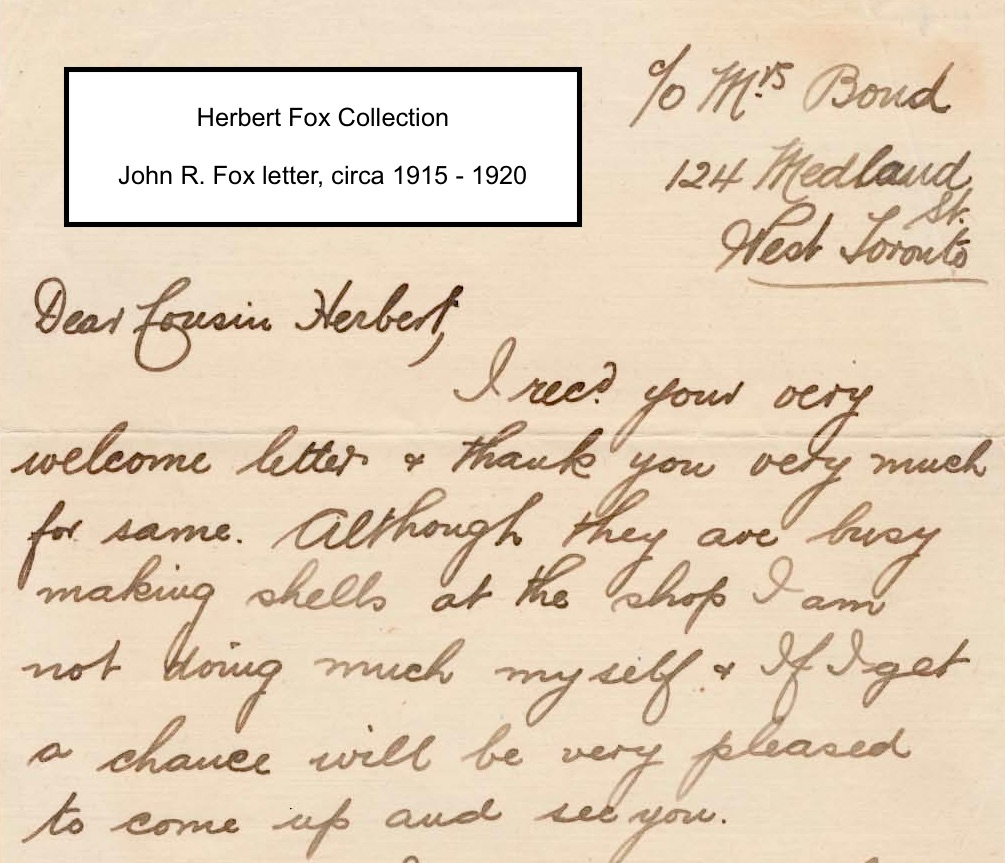 Herbert Fox Collection
John R. Fox letter, circa 1915 - 1920
c/o Mrs Bond
124 Medland
St.
West Toronto
Dear Cousin Herbert,
I recd. your very
welcome letter & thank you very much
for same. Although they are busy
making shells at the shop I am
not doing much myself. & If I get
a chance will be very pleased
to come up and see you.